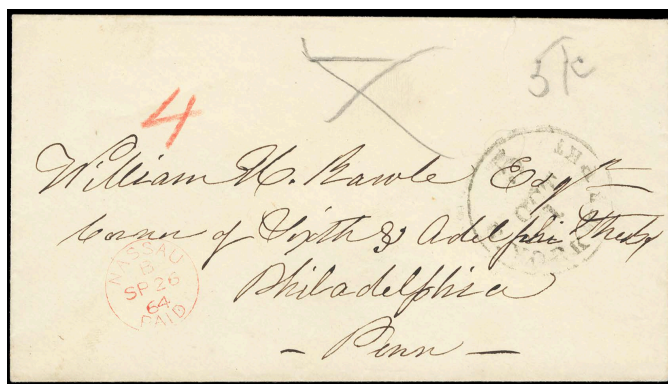 5/c
4
William H. Rawle Esqr
Corner of Sixth & Adelphi Streets
Philadelphia
- Penn -
NASSAU
B
SP 26
64
PAID